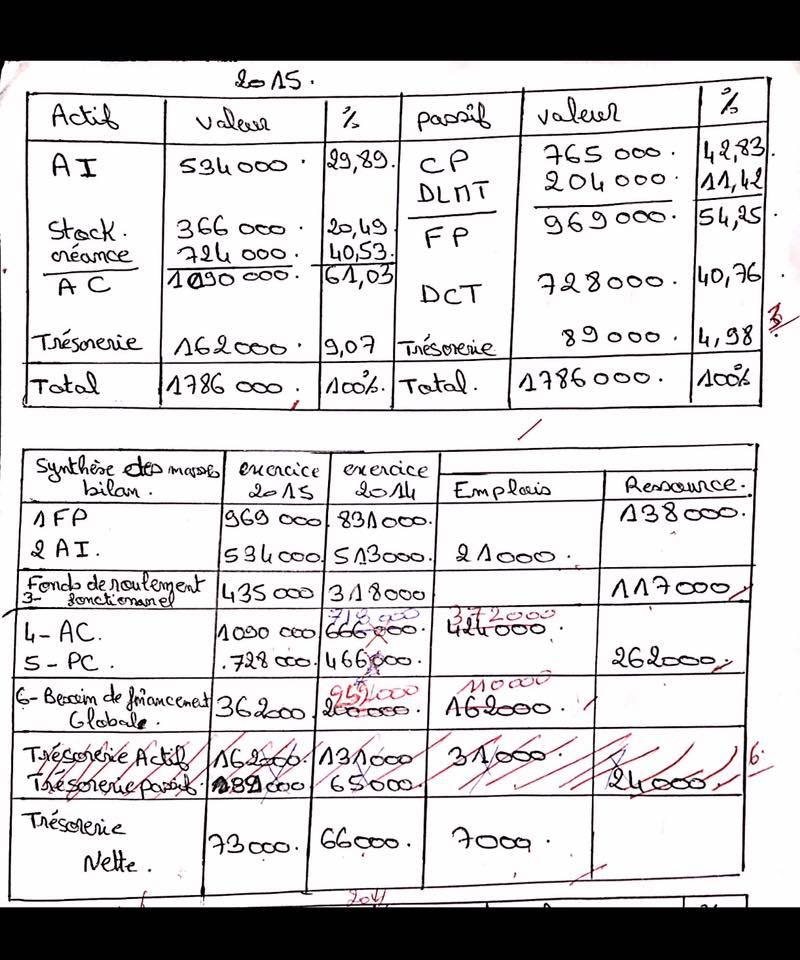 2015.
Actif valeur % passif valeur %
AI 534000. 29,89. CP 765 000. 42,83
DLMT 204 000. 11,42
Stock. 366 000. 20,49 FP 969 000. 54,25
créance 724 000. 40,53
AC 1090 000. 61,03 DCT 728000. 40,76
Trésorerie 162000. 9,07 Trésorerie 89000. 4,98
3
Total 1786 000. 100% Total. 1786 000. 100%
Synthèse des masses exercice exercice
bilan. 2015 2014 Emplois Ressource.
1 FP 969 000. 831000. 138000.
2 AI. 534000. 513000. 21000.
Fonds de roulement 435 000 318000 117000
3- fonctionnel
372000
4- AC. 1090 000 666000. 424000.
5- PC. .728 000. 466000. 262000.
110000
6- Besoin de financement 362000. 200000. 162000.
Globale.
Trésorerie Actif 162000. 131000 31000.
6.
Trésorerie passif. 89000 65000. 24000.
Trésorerie 73000. 66000. 7000.
Nette.